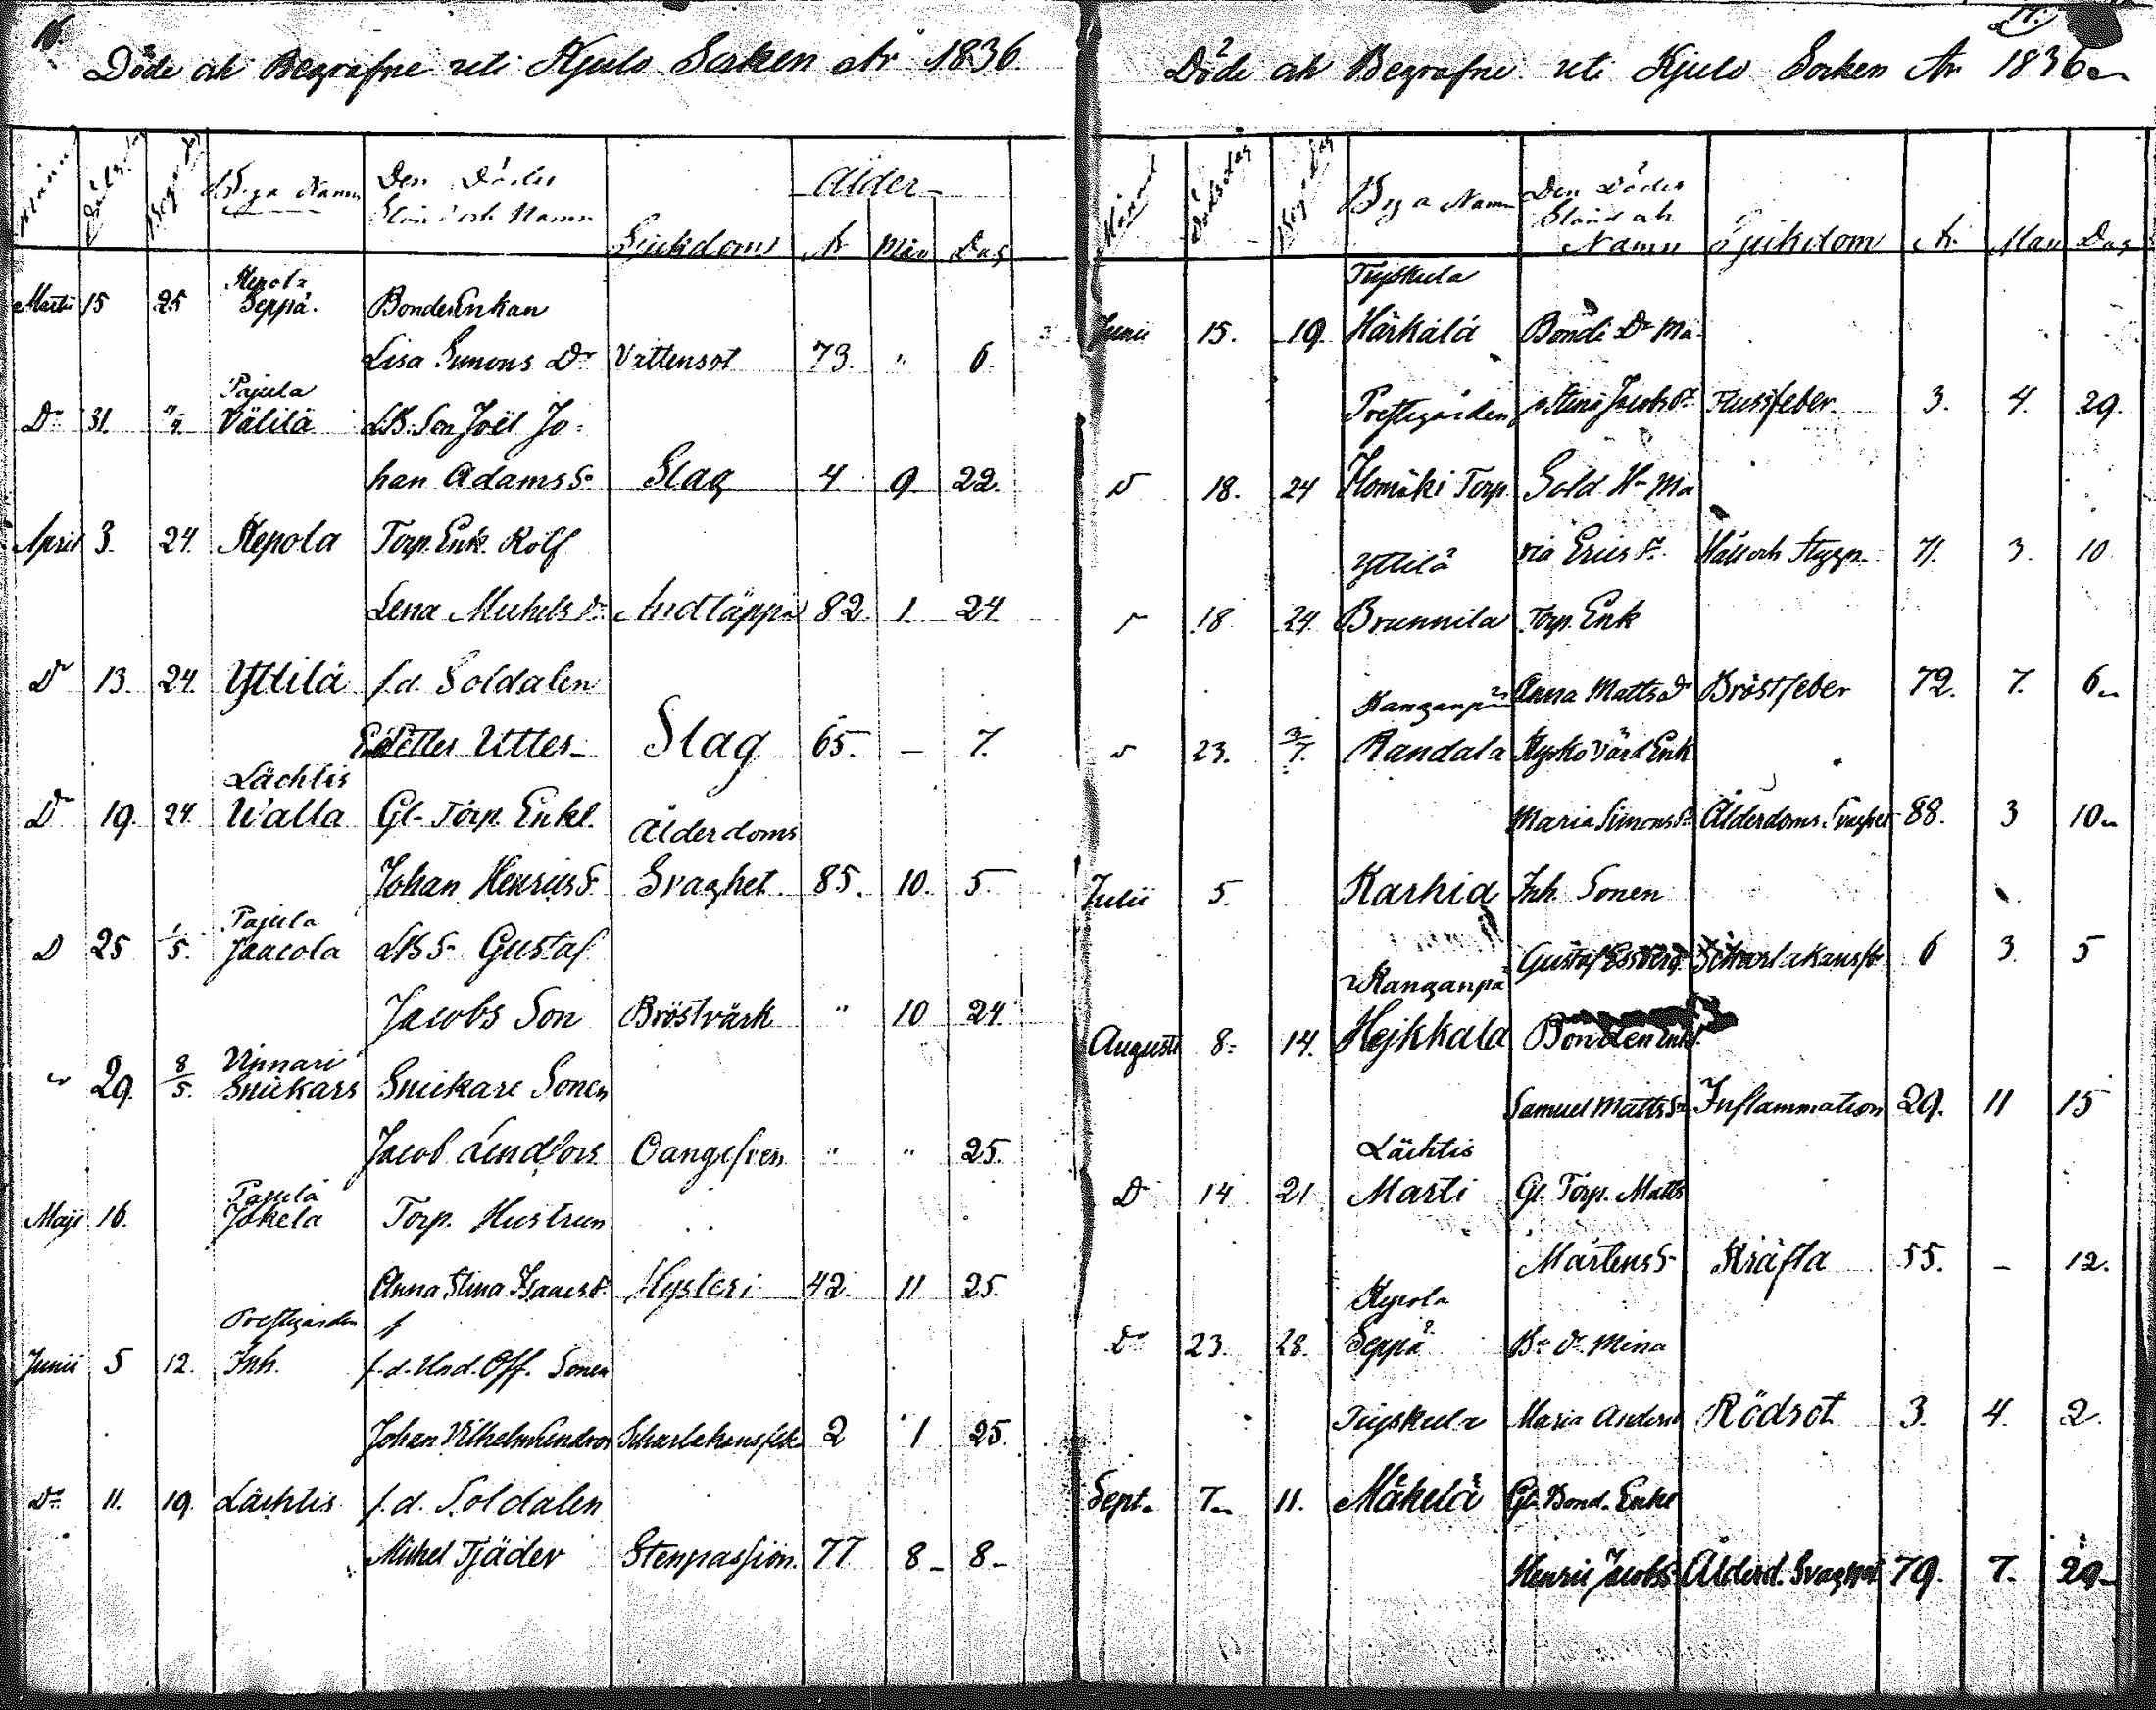 16.
Döde och Begrafne uti Kjulo Socken År 1836.
Månad Dödsdag Begr. dag Bya Namn Den Dödes Stånd och Namn Sjukdoms Ålder År Mån Dag
Kepola
Martii 15 25 Seppä. BondeEnkan
Lisa Simons Dr Vattensot 73. " 6.
Pajula
Dо 31. 4/4 Välilä LB. Son Joël Jo=
han Adams S. Slag 4 9 22.
April 3. 24. Kepola Torp. Enk. Rolf
Lena Michels Dr Andtäppa 82. 1 24
Do 13. 24. Yttilä f.d. Soldaten
Petter Utter Slag 65. — 7.
Lächtis
Do 19. 24. Walla Gl. Torp. Enkl. Ålderdoms
Johan Henrics S. Svaghet. 85. 10. 5.
Pajula
D 25 1/5. Jaacola LBS. Gustaf
Jacobs Son Bröstvärk " 10 24
Vinnari
29. 8/5. Snickars Snickare Sonen
Jacob Lindfors Oangifven " " 25.
Pajula
Maji 16. Jokela Torp. Hustrun
Anna Stina Isaacs D. Hysteri 42. 11 25.
Prestgården
Junii 5 12. Inh. f.d. Und. Off. Sonen
Johan Vilhelm Lindroos Scharlakansfeb. 2 1 25.
Do 11. 19. Lächtis f.d. Soldaten
Michel Tjäder Stenpassion. 77 8 8
17.
Döde och Begrafne uti Kjulo Socken År 1836
Månad Dödsdag Begr. dag Bya Namn Den Dödes Stånd och Namn Sjukdom År. Mån Dag
Tujskula
Junii 15. 19. Härkälä Bonde Dr Ma=
Prestegården ja Stina Jacobs Dr Flussfeber 3. 4. 29.
D 18. 24 Ilomäki Torp Sold. H. Ma
Yttilä ria Erics D. Håll och Stygn 71. 3. 10
18 24 Brunnila Torp. Enk
Kanganpää Anna Matts Dr Bröstfeber 72. 7. 6
23. 3/7. Randala Kyrko Värd Enk
Maria Simons D. Ålderdoms Svaghet 88. 3 10
Julii 5. Karhia Inh. Sonen
Gustaf Scharlakansfb 6 3. 5
Kanganpä
Augusti 8. 14. Hejkkala Bonden Enkl.
Samuel Matts S. Inflammation 29. 11 15
Lächtis
D 14 21 Marti Gl. Torp. Matts
Mårtens S. Kräfta 55. — 12.
Kepola
Do 23. 28. Seppä B. Dr. Mina
Tujskula Maria Anders Rödsot 3. 4. 2.
Sept. 7. 11. Mäkelä Gl. Bond. Enkl
Henric Jacobs Ålderd. Svaghet 79. 7. 29